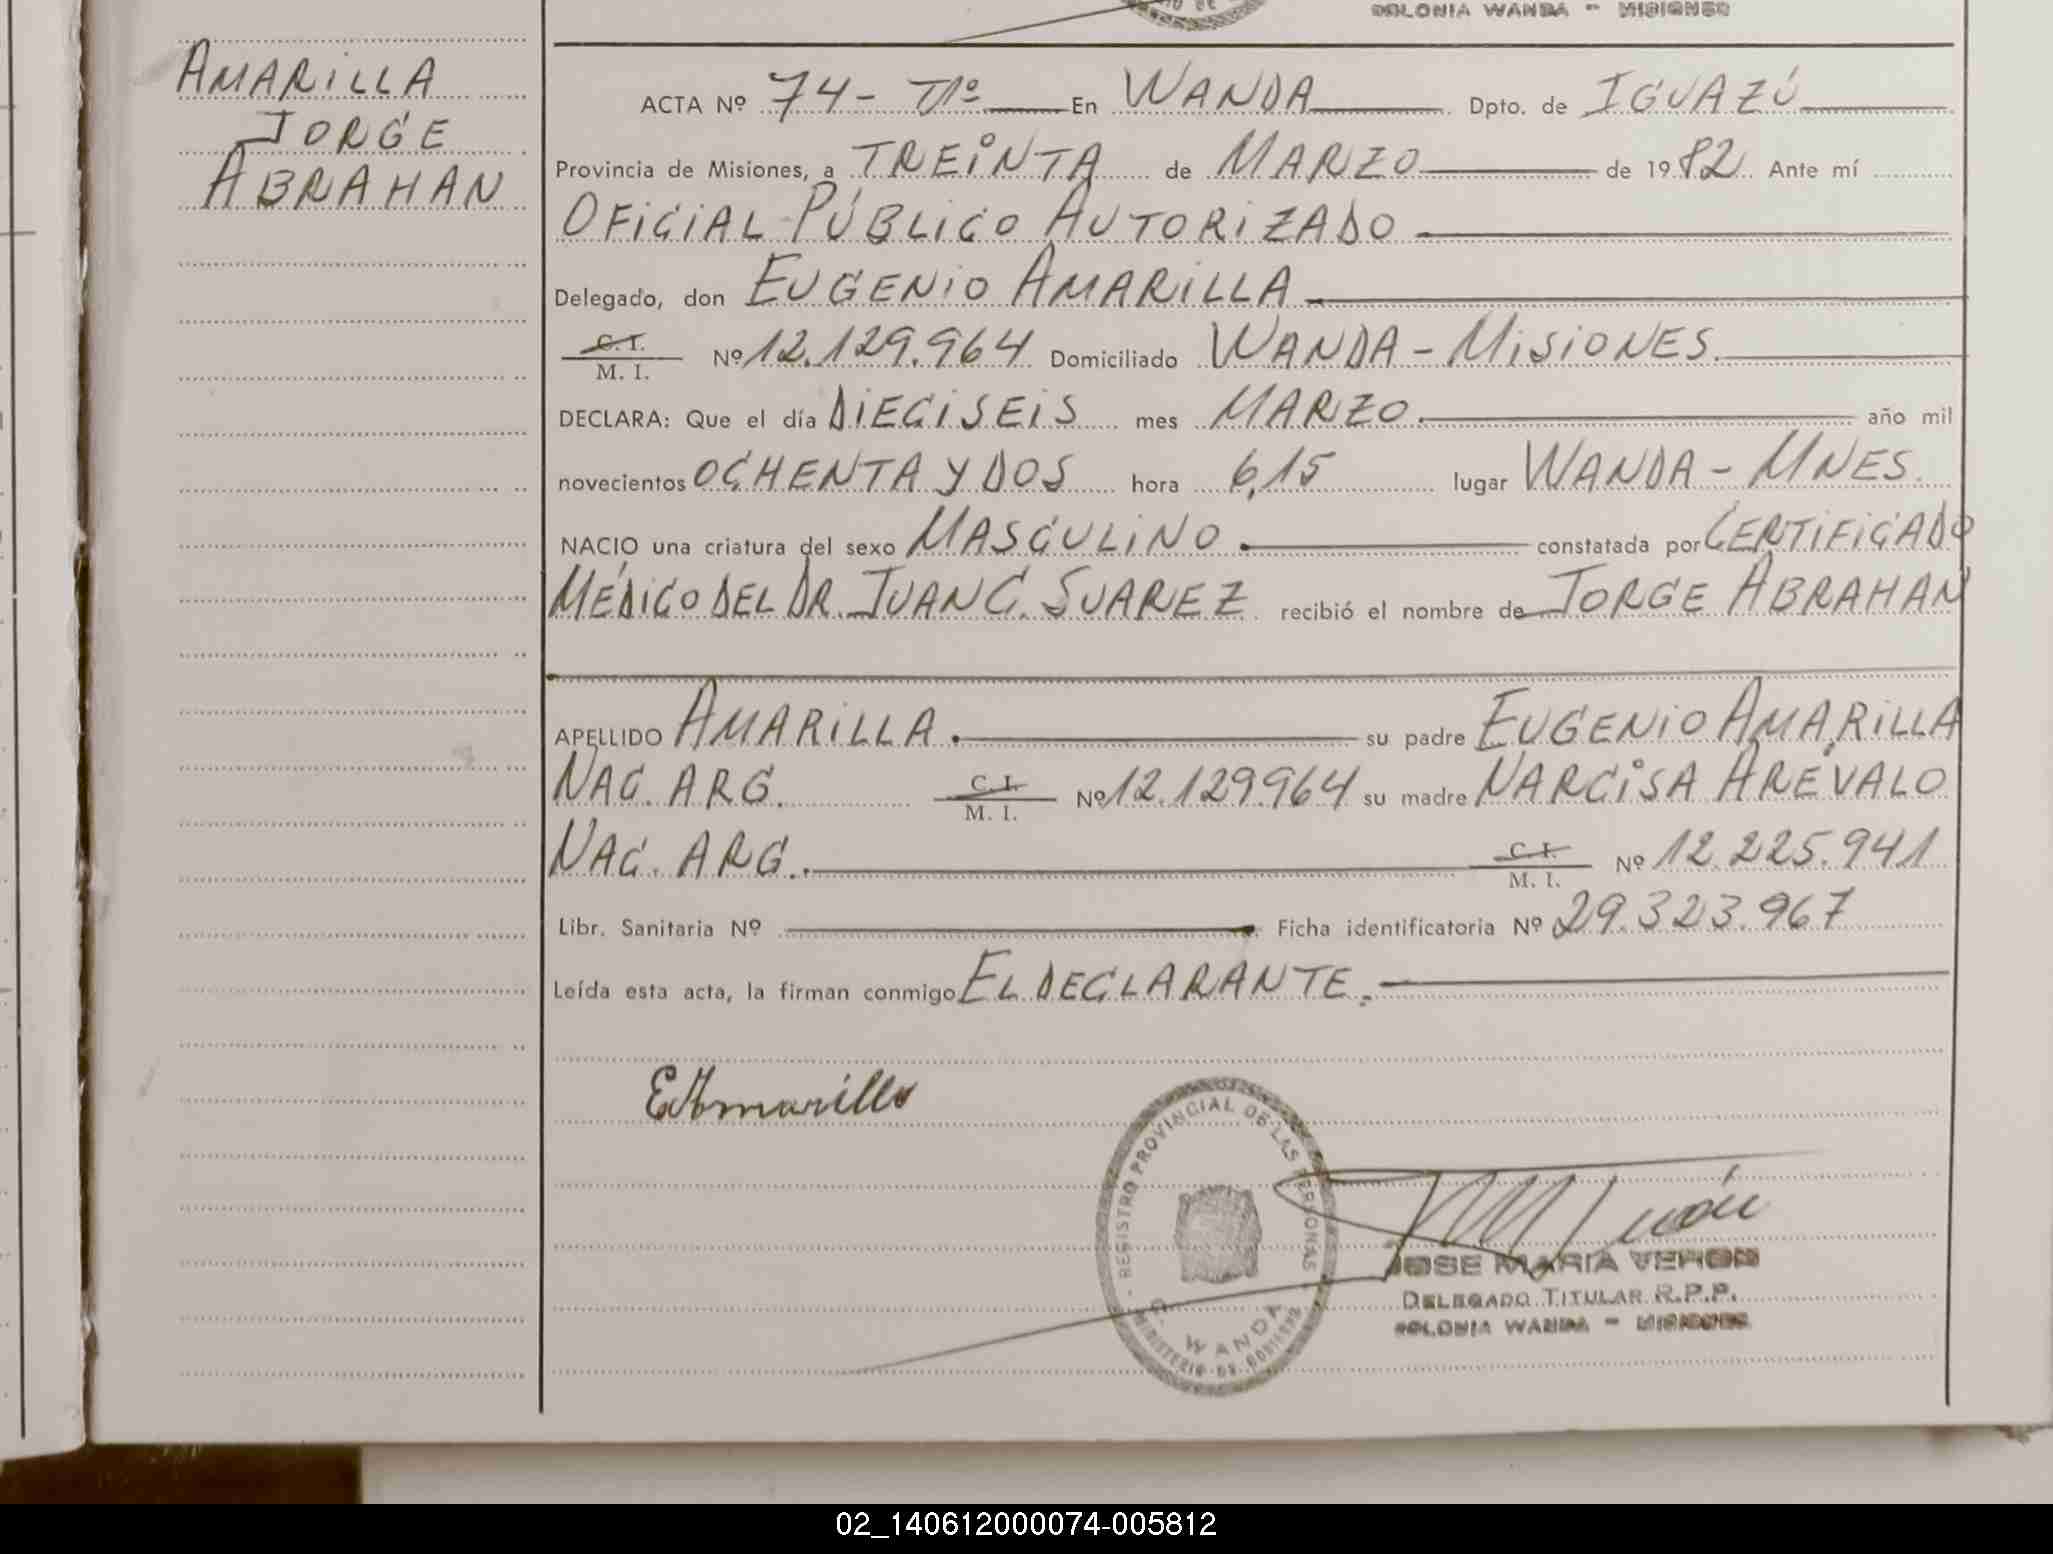 COLONIA WANDA - MISIONES
AMARILLA
JORGE
ABRAHAN
ACTA Nº 74- Tº En WANDA Dpto. de IGUAZÚ
Provincia de Misiones, a TREINTA de MARZO de 1982 Ante mí
OFICIAL PÚBLICO AUTORIZADO
Delegado, don EUGENIO AMARILLA
C. I.
M. I. Nº 12.129.964 Domiciliado WANDA - MISIONES.
DECLARA: Que el día DIECISEIS mes MARZO. año mil
novecientos OCHENTA Y DOS hora 6,15 lugar WANDA - MNES.
NACIO una criatura del sexo MASCULINO. constatada por CERTIFICADO
MÉDICO DEL DR. JUAN C. SUAREZ recibió el nombre de JORGE ABRAHAN
APELLIDO AMARILLA. su padre EUGENIO AMARILLA
NAC. ARG. C. I. M. I. Nº 12.129.964 su madre NARCISA ARÉVALO
NAC. ARG. C. I. M. I. Nº 12.225.941
Libr. Sanitaria Nº Ficha identificatoria Nº 29.323.967
Leída esta acta, la firman conmigo EL DECLARANTE.
EAmarilla
REGISTRO PROVINCIAL DE LAS PERSONAS
C. WANDA
MINISTERIO DE GOBIERNO
JOSE MARIA VERON
DELEGADO TITULAR R.P.P.
COLONIA WANDA - MISIONES
02_140612000074-005812